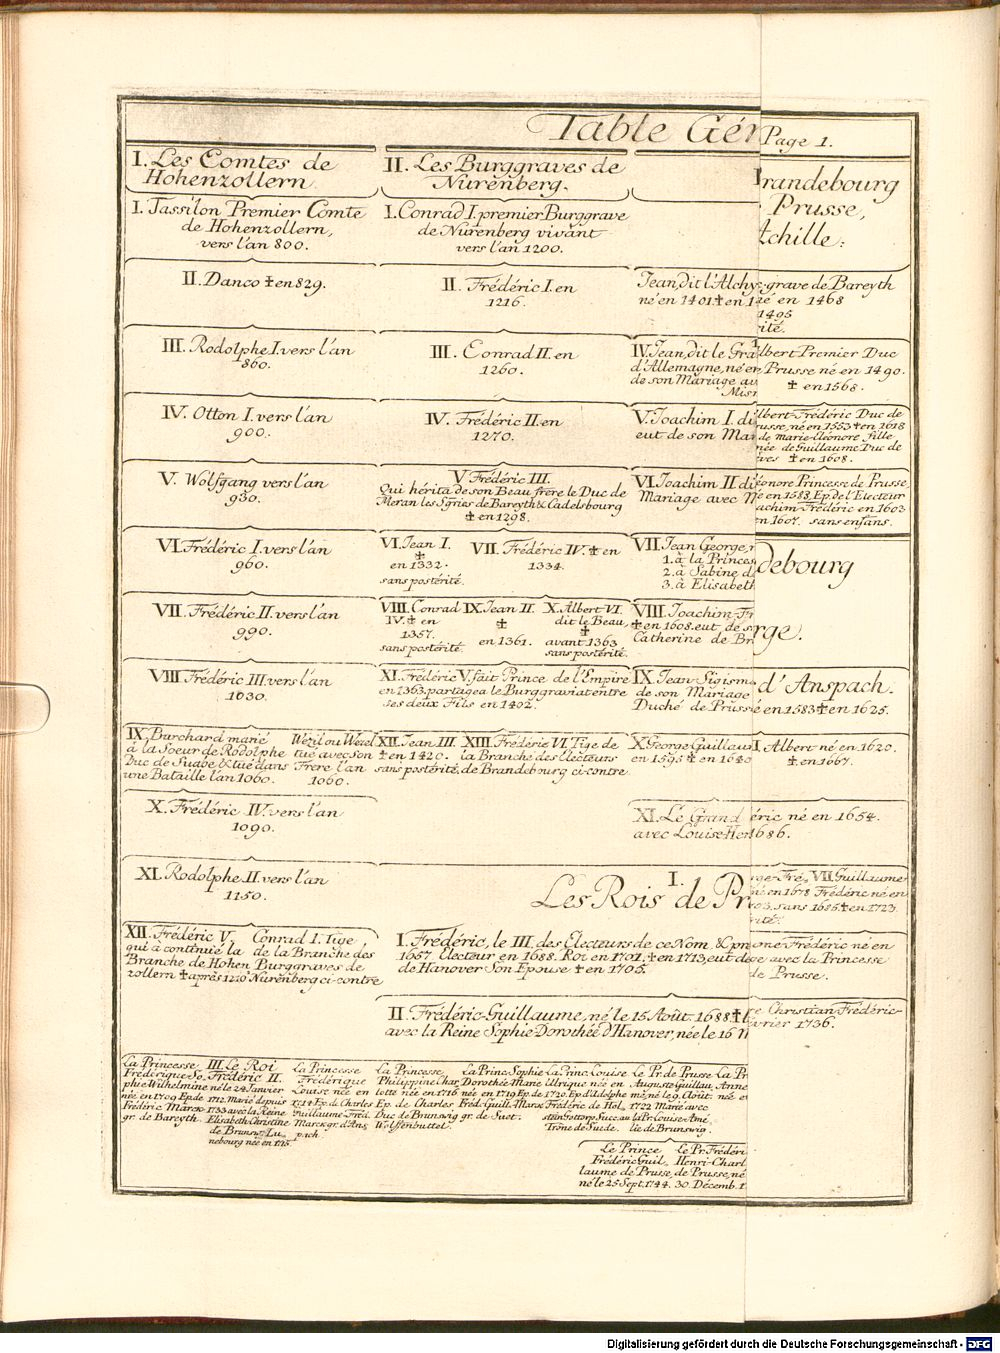 Table Gén
Page 1.
I. Les Comtes de
Hohenzollern.
I. Tassilon Premier Comte
de Hohenzollern,
vers l'an 800.
II. Danco ✝ en 829.
III. Rodolphe I. vers l'an
860.
IV. Otton I. vers l'an
900.
V. Wolfgang vers l'an
930.
VI. Frédéric I. vers l'an
960.
VII. Frédéric II. vers l'an
990.
VIII. Frédéric III. vers l'an
1030.
IX. Burchard marié
à la Soeur de Rodolphe
Duc de Suabe, & tué dans
une Bataille l'an 1060.
Wezil ou Wezel
tué avec son
Frere l'an
1060.
X. Frédéric IV. vers l'an
1090.
XI. Rodolphe II. vers l'an
1150.
XII. Frédéric V.
qui à continué la
Branche de Hohen
zollern ✝ après 1210
Conrad I. Tige
de la Branche des
Burggraves de
Nurenberg ci-contre
II. Les Burggraves de
Nurenberg.
I. Conrad I. premier Burggrave
de Nurenberg vivant
vers l'an 1200.
II. Frédéric I. en
1216.
III. Conrad II. en
1260.
IV. Frédéric II. en
1270.
V Frédéric III.
Qui hérita de son Beau frere le Duc de
Meran les Sgries de Bareyth & Cadelsbourg
✝ en 1298.
VI. Jean I.
✝
en 1332.
sans postérité.
VII. Frédéric IV. ✝ en
1334.
VIII. Conrad
IV. ✝ en
1357.
sans postérité.
IX. Jean II.
✝
en 1361.
X. Albert VI.
dit le Beau,
✝
avant 1363
sans postérité.
XI. Frédéric V. fait Prince de l'Empire
en 1363. partagea le Burggraviat entre
ses deux Fils en 1402.
XII. Jean III.
✝ en 1420.
sans postérité.
XIII. Fréderic VI. Tige de
la Branche des Électeurs
de Brandebourg ci-contre
Jean, dit l'Alchy
né en 1401 ✝ en 1
IV. Jean, dit le Gra
d'Allemagne, né en
de son Mariage av
Misn
V. Joachim I. di
eut de son Mar
VI. Joachim II di
Mariage avec M
VII. Jean George, n
1. à la Princes
2. à Sabine d
3. à Elisabeth
VIII. Joachim-Fr
✝ en 1608. eut de s
Catherine de Br
IX. Jean-Sigism
de son Mariage
Duché de Prusse
X. George Guillau
en 1595 ✝ en 1640
XI. Le Grand
avec Louise Hen
randebourg
Prusse,
Achille:
grave de Bareyth
né en 1468
1495
rité.
lbert Premier Duc
Prusse né en 1490.
✝ en 1568.
lbert-Frédéric Duc de
russe, né en 1553 ✝ en 1618
de marie-Eléonore fille
née de Guillaume Duc de
ves ✝ en 1608.
éonore Princesse de Prusse,
e en 1583, Ep. de l'Electeur
achim-Frédéric en 1603
en 1607. sans enfans.
debourg
rge.
d'Anspach.
é en 1583 ✝ en 1625.
I. Albert né en 1620.
✝ en 1667.
éric né en 1654.
1686.
rge-Fré,
né en 1678
03. sans
rité.
VII. Guillaume
Frédéric né en
1685 ✝ en 1723.
rome-Frédéric né en
ge avec la Princesse
de Prusse.
re Christian-Frédéric-
vrier 1736.
I.
Les Rois de Pr
I. Frédéric, le III. des Électeurs de ce Nom, & pr
1657. Electeur en 1688. Roi en 1701. ✝ en 1713, eut d
de Hanover Son Epouse ✝ en 1705.
II. Frédéric-Guillaume, né le 15 Août. 1688 ✝ l
avec la Reine Sophie-Dorothée d'Hanover, née le 16 M
La Princesse
Frédérique-So-
phie Wilhelmine
née en 1709 Ep. de
Frédéric Marck-
gr. de Bareyth.
III. Le Roi
Frédéric II.
né le 24 Janvier
1712. Marié depuis
1733 avec la Reine
Elisabeth Christine
de Brunsw. Lu-
nebourg née en 1715.
La Princesse
Frédérique
Louise née en
1714 Ep. de Charles
Guillaume Fréd.
Marckgr. d'Ans
pach.
La Princesse
Philippine Char
lotte née en 1716
Ep. de Charles
Duc de Brunswig
Wolffenbuttel.
La Princ. Sophie
Dorothée Marie
née en 1719 Ep. de
Fréd. Guill. Marck
gr. de Suet.
La Princ. Louise
Ulrique née en
1720. Ep. d'Adolphe
Frédéric de Hol,
stein Gottorp Succ. au
Trône de Suede.
Le Pr. de Prusse
Auguste Guillau,
me né le 9. Août.
1722 Marié avec
la Pr. Louise-Amé,
lie de Brunswig.
La Pr
Anne
née e
Le Prince
Frédéric Guil,
laume de Prusse,
né le 25 Sept. 1744.
Le Pr. Frédéri
Henri-Charl
de Prusse, né
30. Décemb. 1
Digitalisierung gefördert durch die Deutsche Forschungsgemeinschaft - DFG